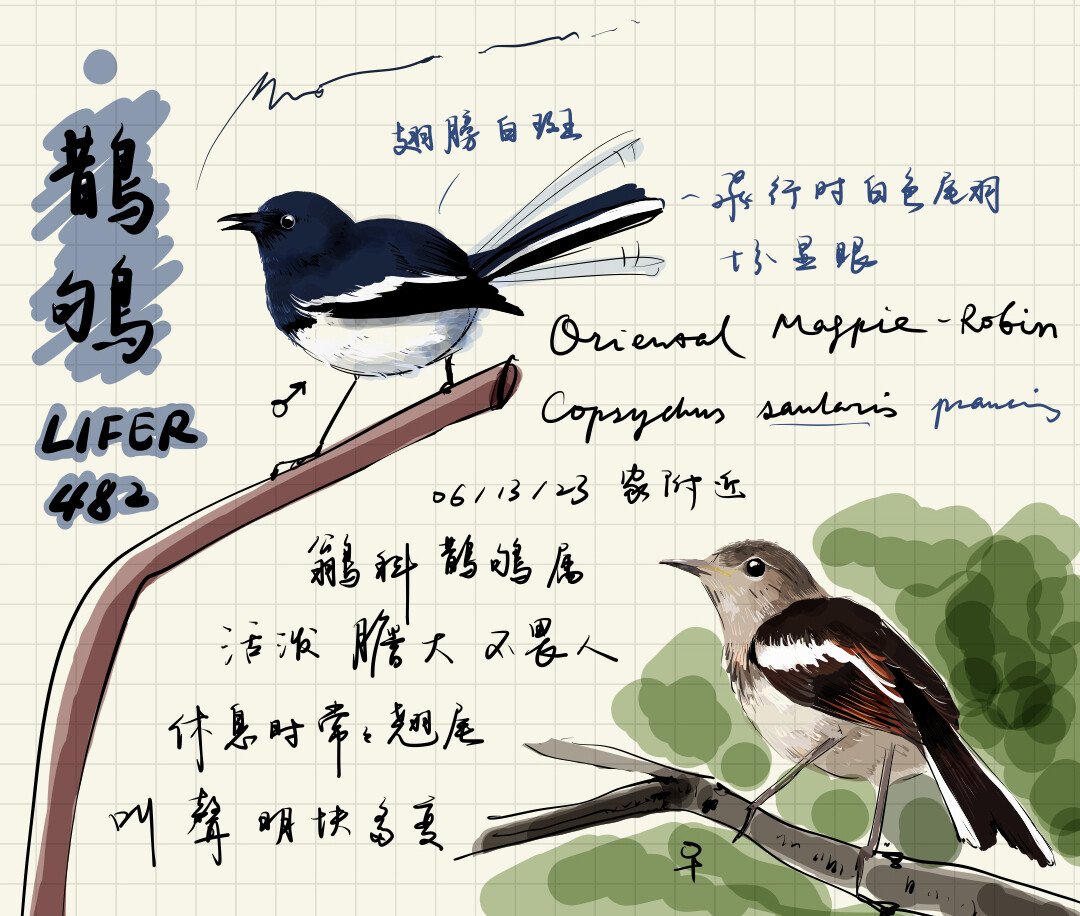 鹊鸲
LIFER
482
翅膀白斑
飛行时白色尾羽
十分显眼
Oriental Magpie-Robin
Copsychus saularis
06/13/23 家附近
鹟科 鹊鸲属
活泼 膽大 不畏人
休息时常々翘尾
叫聲明快多变
♂
♀